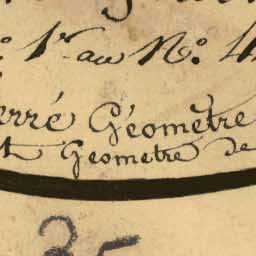 1.r au N.º 4
erré Géomètre
t Geometre de
35